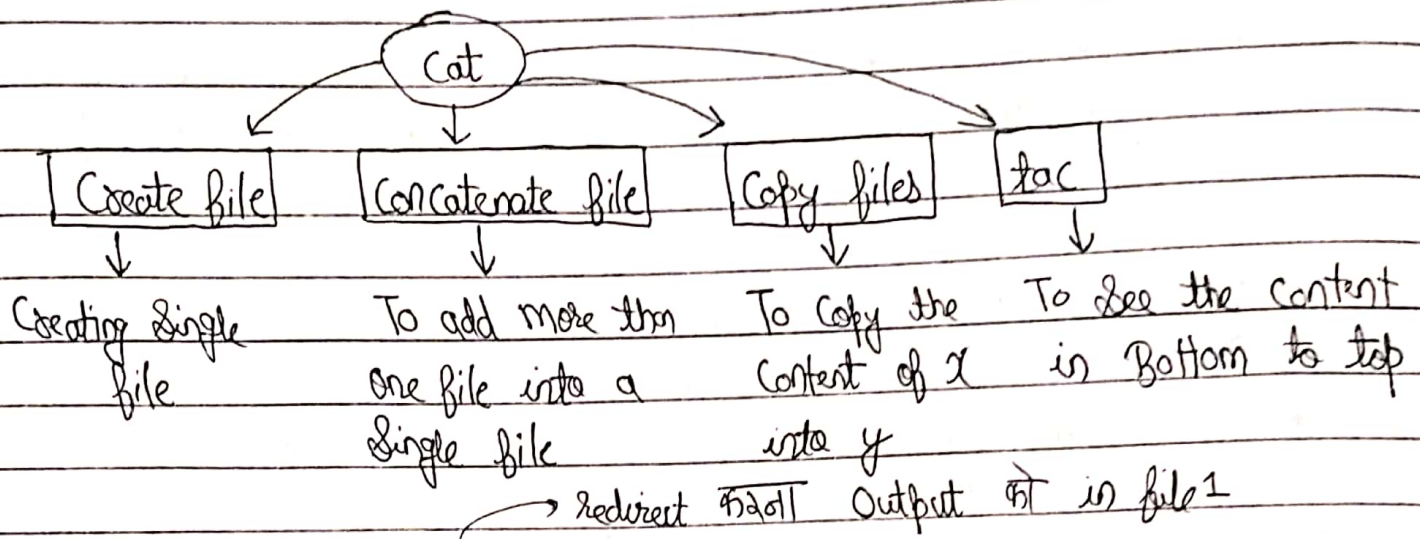 Cat
Create file
Concatenate file
Copy files
tac
Creating single
file
To add more than
one file into a
single file
To Copy the
Content of x
into y
To see the content
in Bottom to top
→ redirect करना Output को in file1